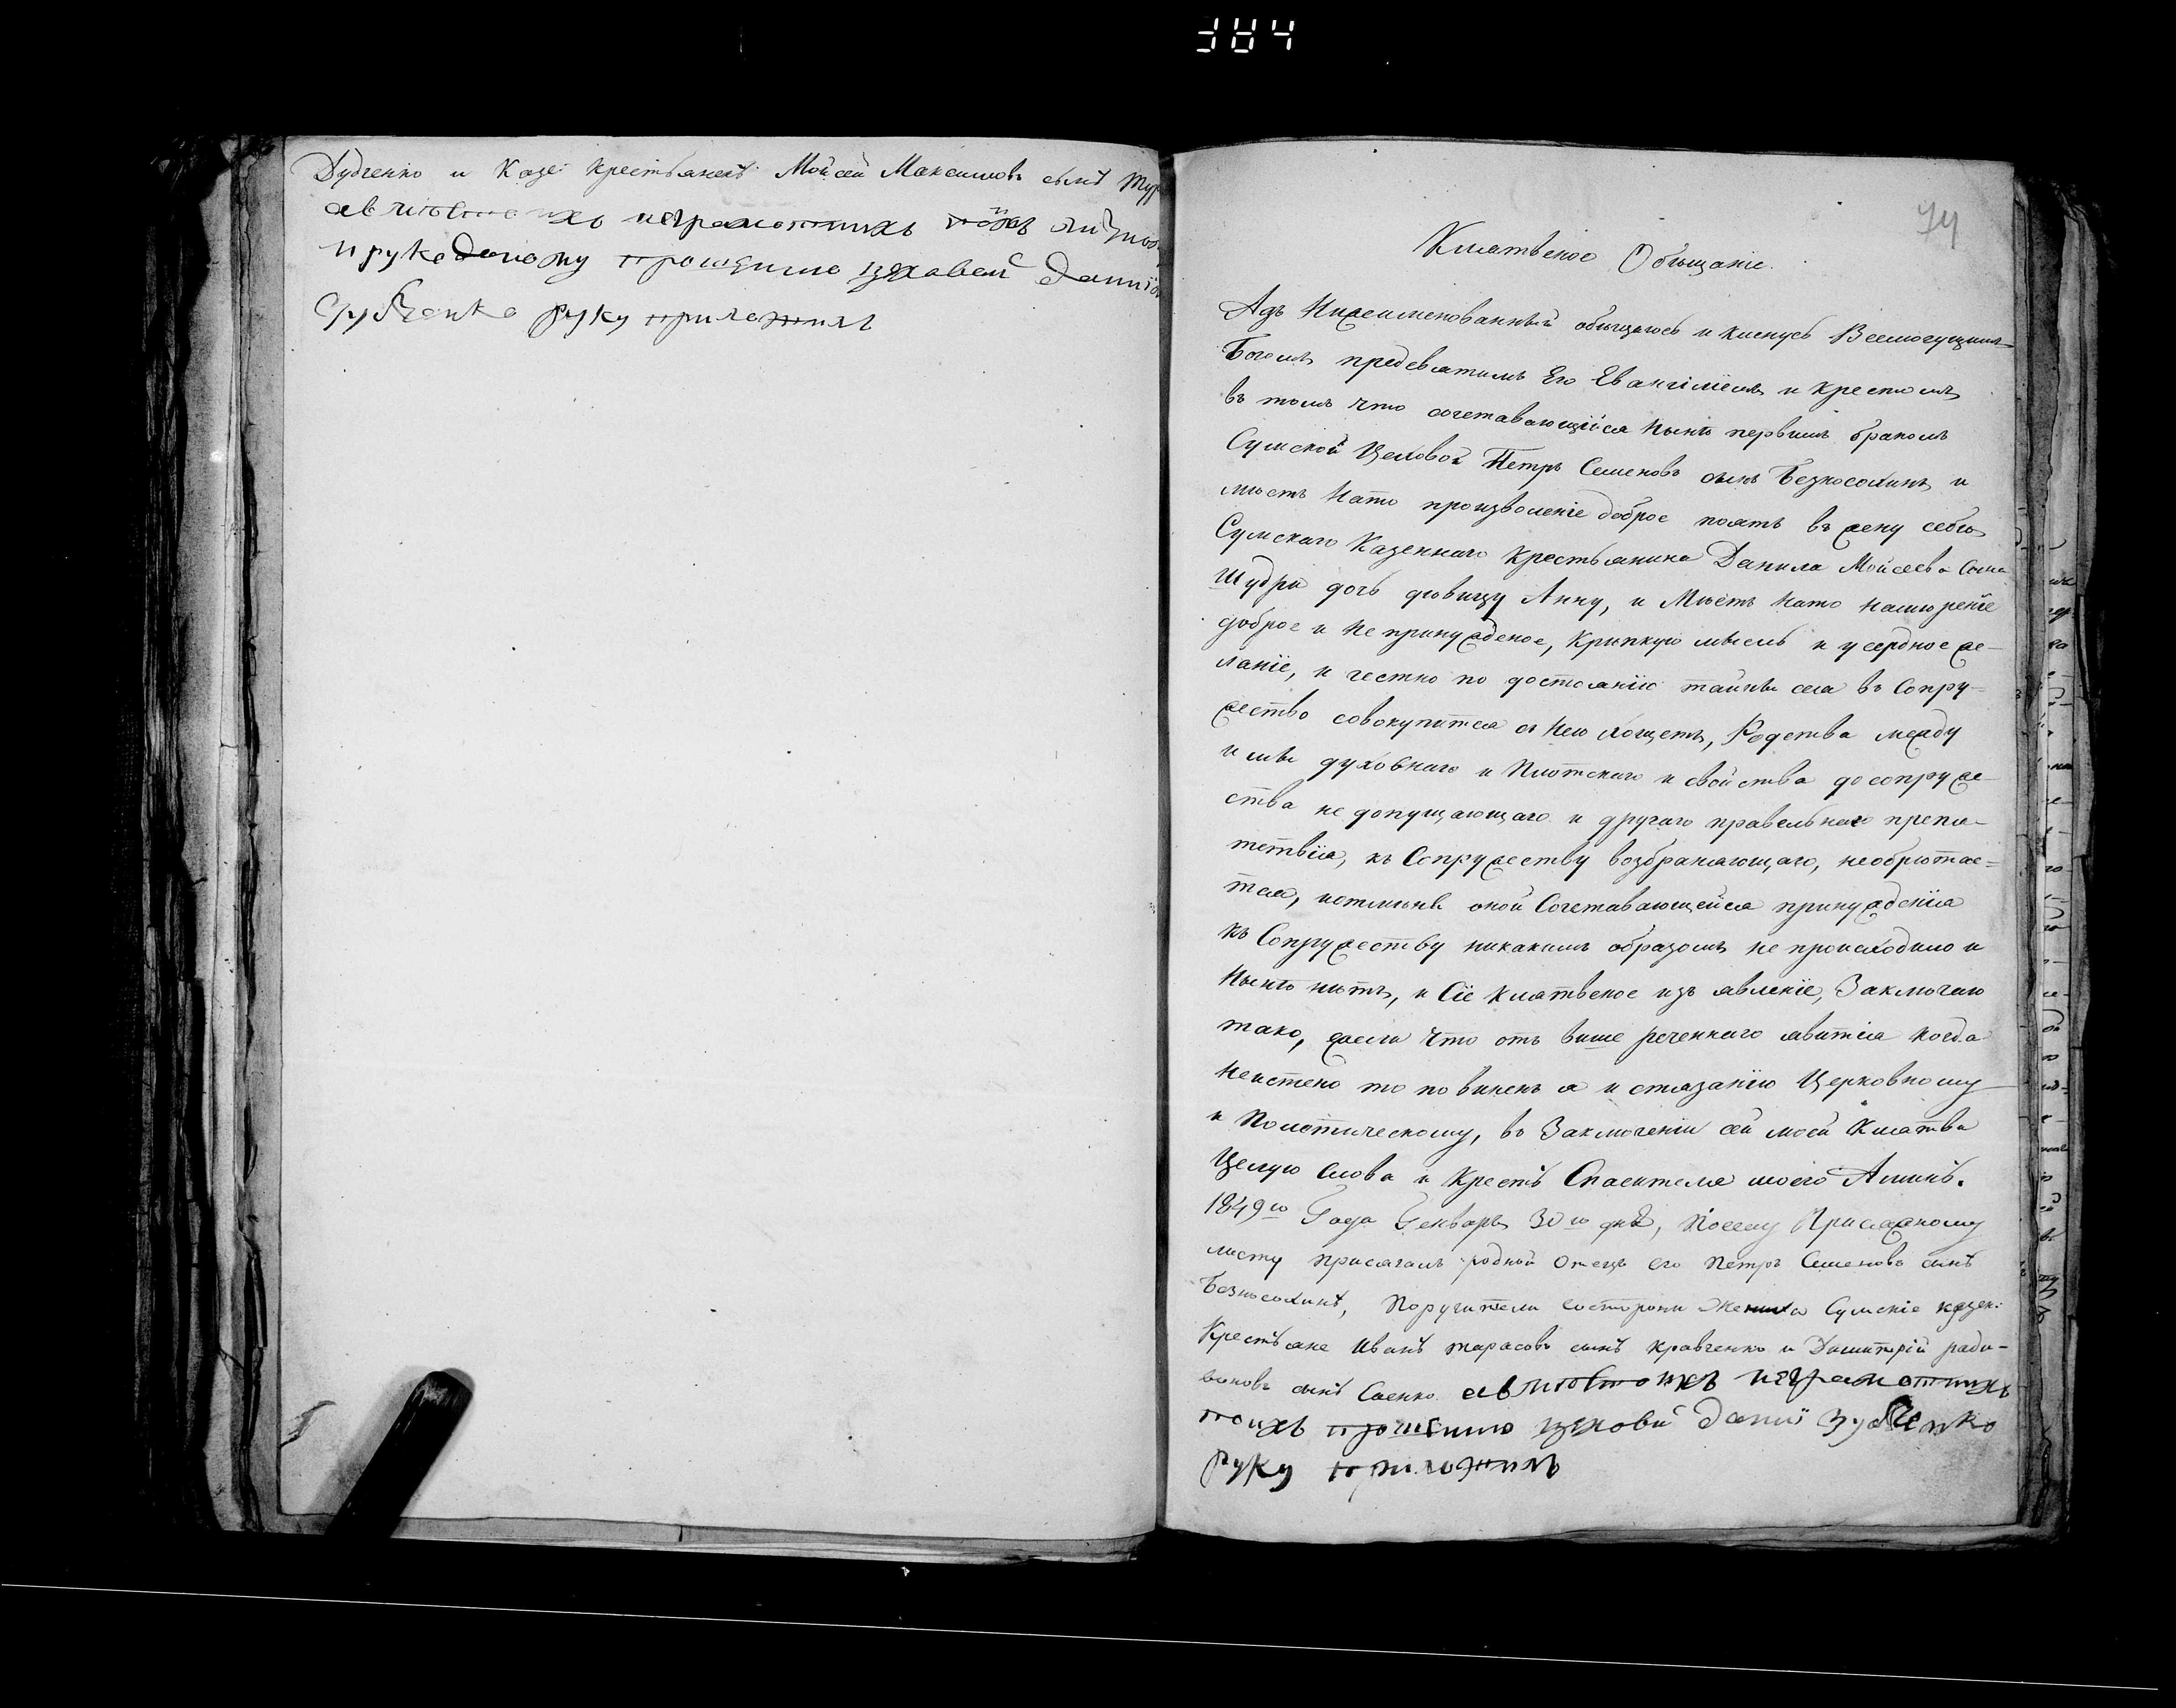 384
Дудченко и Казе: крестьяненъ Мойсей Максимовъ сынъ
неграмотнихъ
и рукоданому прошению цеховей Данило
Зубченко руку приложилъ
74
Клятвеное Обещаніе.
Азъ Нижеименованный обещаюсь и кленусь Всемогущимъ
Богомъ предсвятимъ Его Евангиліемъ и крестомъ
въ томъ что сочетавающійся нынѣ первимъ бракомъ
Сумской Цеховой Петръ Семеновъ сынъ Безносохинъ и
мѣетъ Нато произволеніе доброе поять въ жену себѣ
Сумскаго Казеннаго Крестьянина Данила Мойсеева Сына
Шудри дочь дѣвицу Анну, и Мѣетъ Нато намѣреніе
доброе и Не принужденое, Крѣпкую мысль и усердное же-
ланіе, и честно по достоянію тайны сея въ Сопру-
жество совокупится съ Нею хощетъ, Родства между
ими духовнаго и Плотскаго и свойства до сопруже-
ства не допущающаго и другаго правельнаго препя-
тствія, къ Сопружеству возбраняющаго, необрѣтае-
тся, оной Сочетавающейся принужденія
къ Сопружеству никакимъ образомъ не происходило и
Нынѣ нѣтъ, и Сіе клятвеное изъявленіе, Заключаю
тако, ежели что отъ више реченнаго явится когда
Неистено то повиненъ я истязанію Церковному
и Политическому, въ Заключеніи сей моей Клятвы
Целую Слова и Крестъ Спасителя моего Аминь.
1849го Года Генваря 30го дня, Посему Присяжному
листу присягалъ родной Отецъ его Петръ Семеновъ сынъ
Безносохинъ, Поручители состороны Жениха Сумскіе казен:
Крестьяне Иванъ Тарасовъ сынъ Кравченко и Димитрій ради-
оновъ сынъ Саенко неграмотнихъ
поихъ прошению цехови Данил Зубченко
руку приложилъ